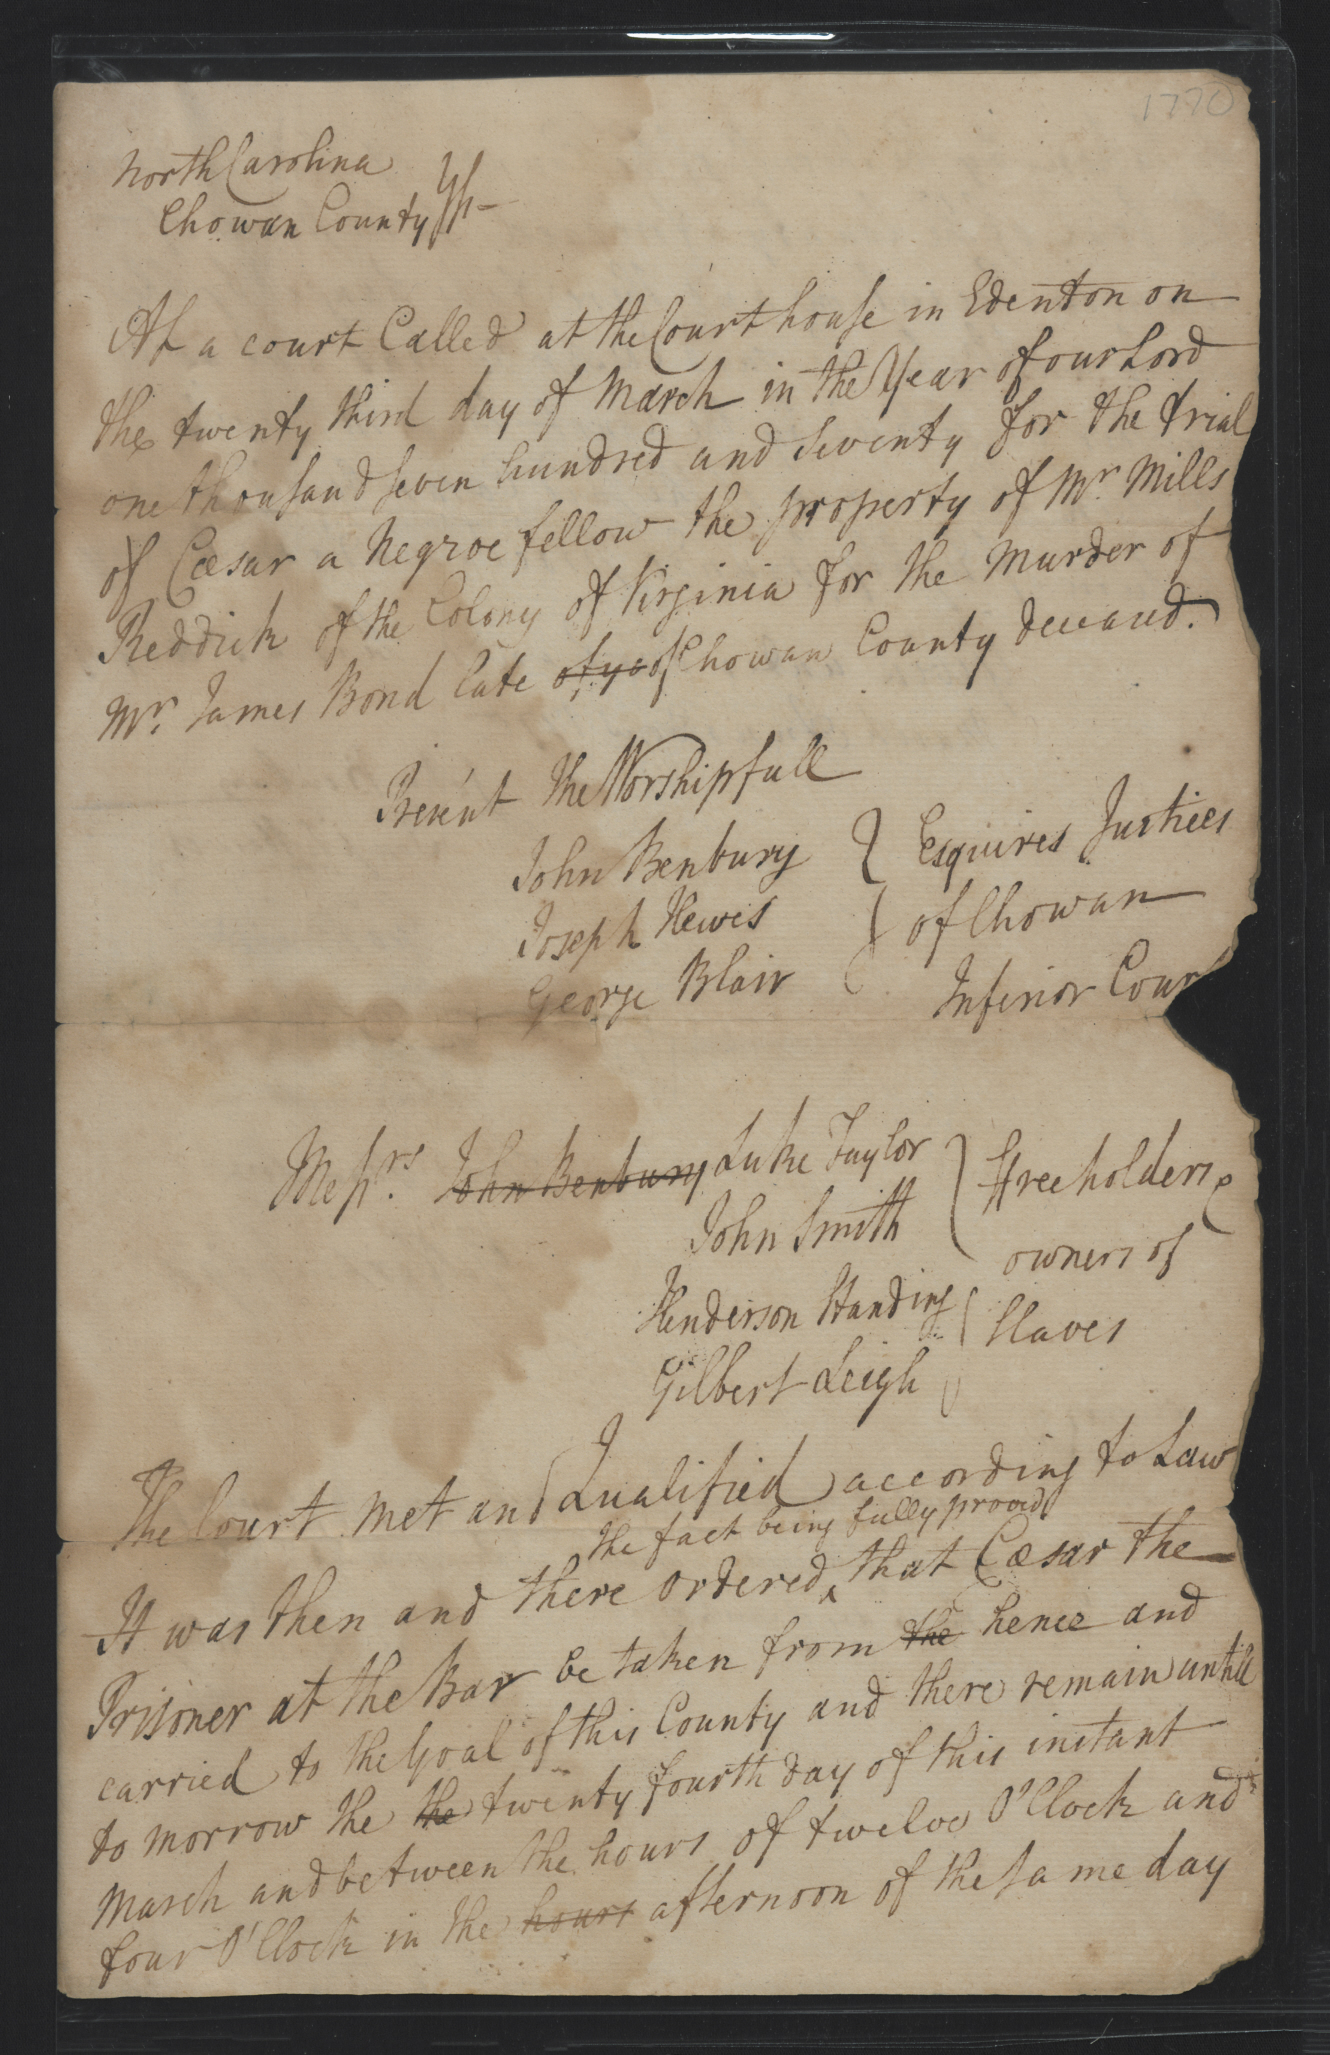 1770
North Carolina
Chowan County Ss
At a court Called at the Court house in Edenton on
the twenty third day of March in the Year of our Lord
one thousand seven hundred and seventy for the trial
of Cæsar a Negroe fellow the property of Mr. Mills
Reddick of the Colony of Virginia for the Murder of
Mr. James Bond late of ye of Chowan County deceasd.
Present the Worshipfull
John Benbury } Esquires Justices
Joseph Hewes } of Chowan
George Blair Inferior Court
Messrs. John Benbury Luke Taylor } Freeholders &
John Smith owners of
Henderson Standing } Slaves
Gilbert Leigh
The Court met and Qualified according to Law
the fact being fully proovd
It was then and there ordered ‸ that Cæsar the
Prisoner at the Bar be taken from the hence and
carried to the Goal of this County and there remain untill
to morrow the the twenty fourth day of this instant
March and between the hours of twelve O'Clock and
four O'Clock in the hours afternoon of the same day